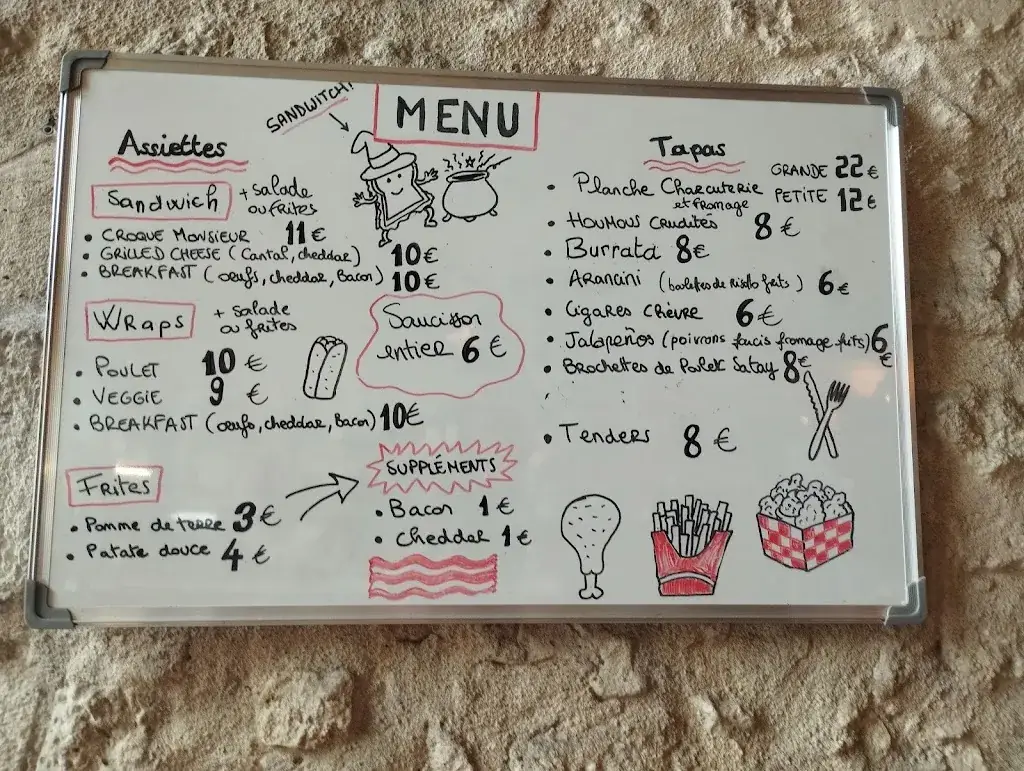 MENU
SANDWITCH!
Assiettes
Sandwich + salade
ou frites
• CROQUE MONSIEUR 11€
• GRILLED CHEESE (Cantal, cheddar) 10€
• BREAKFAST (oeufs, cheddar, Bacon) 10€
Wraps + salade
ou frites
• POULET 10€
• VEGGIE 9€
• BREAKFAST (oeufs, cheddar, Bacon) 10€
Frites
• Pomme de terre 3€
• Patate douce 4€
Saucisson
entier 6€
SUPPLÉMENTS
• Bacon 1€
• Cheddar 1€
Tapas
• Planche Charcuterie GRANDE 22€
et fromage PETITE 12€
• HOUMOUS Crudités 8€
• Burrata 8€
• Arancini (boulettes de Risotto frits) 6€
• Cigares Chèvre 6€
• Jalapeños (poivrons farcis fromage frits) 6€
• Brochettes de Poulet Satay 8€
• Tenders 8€